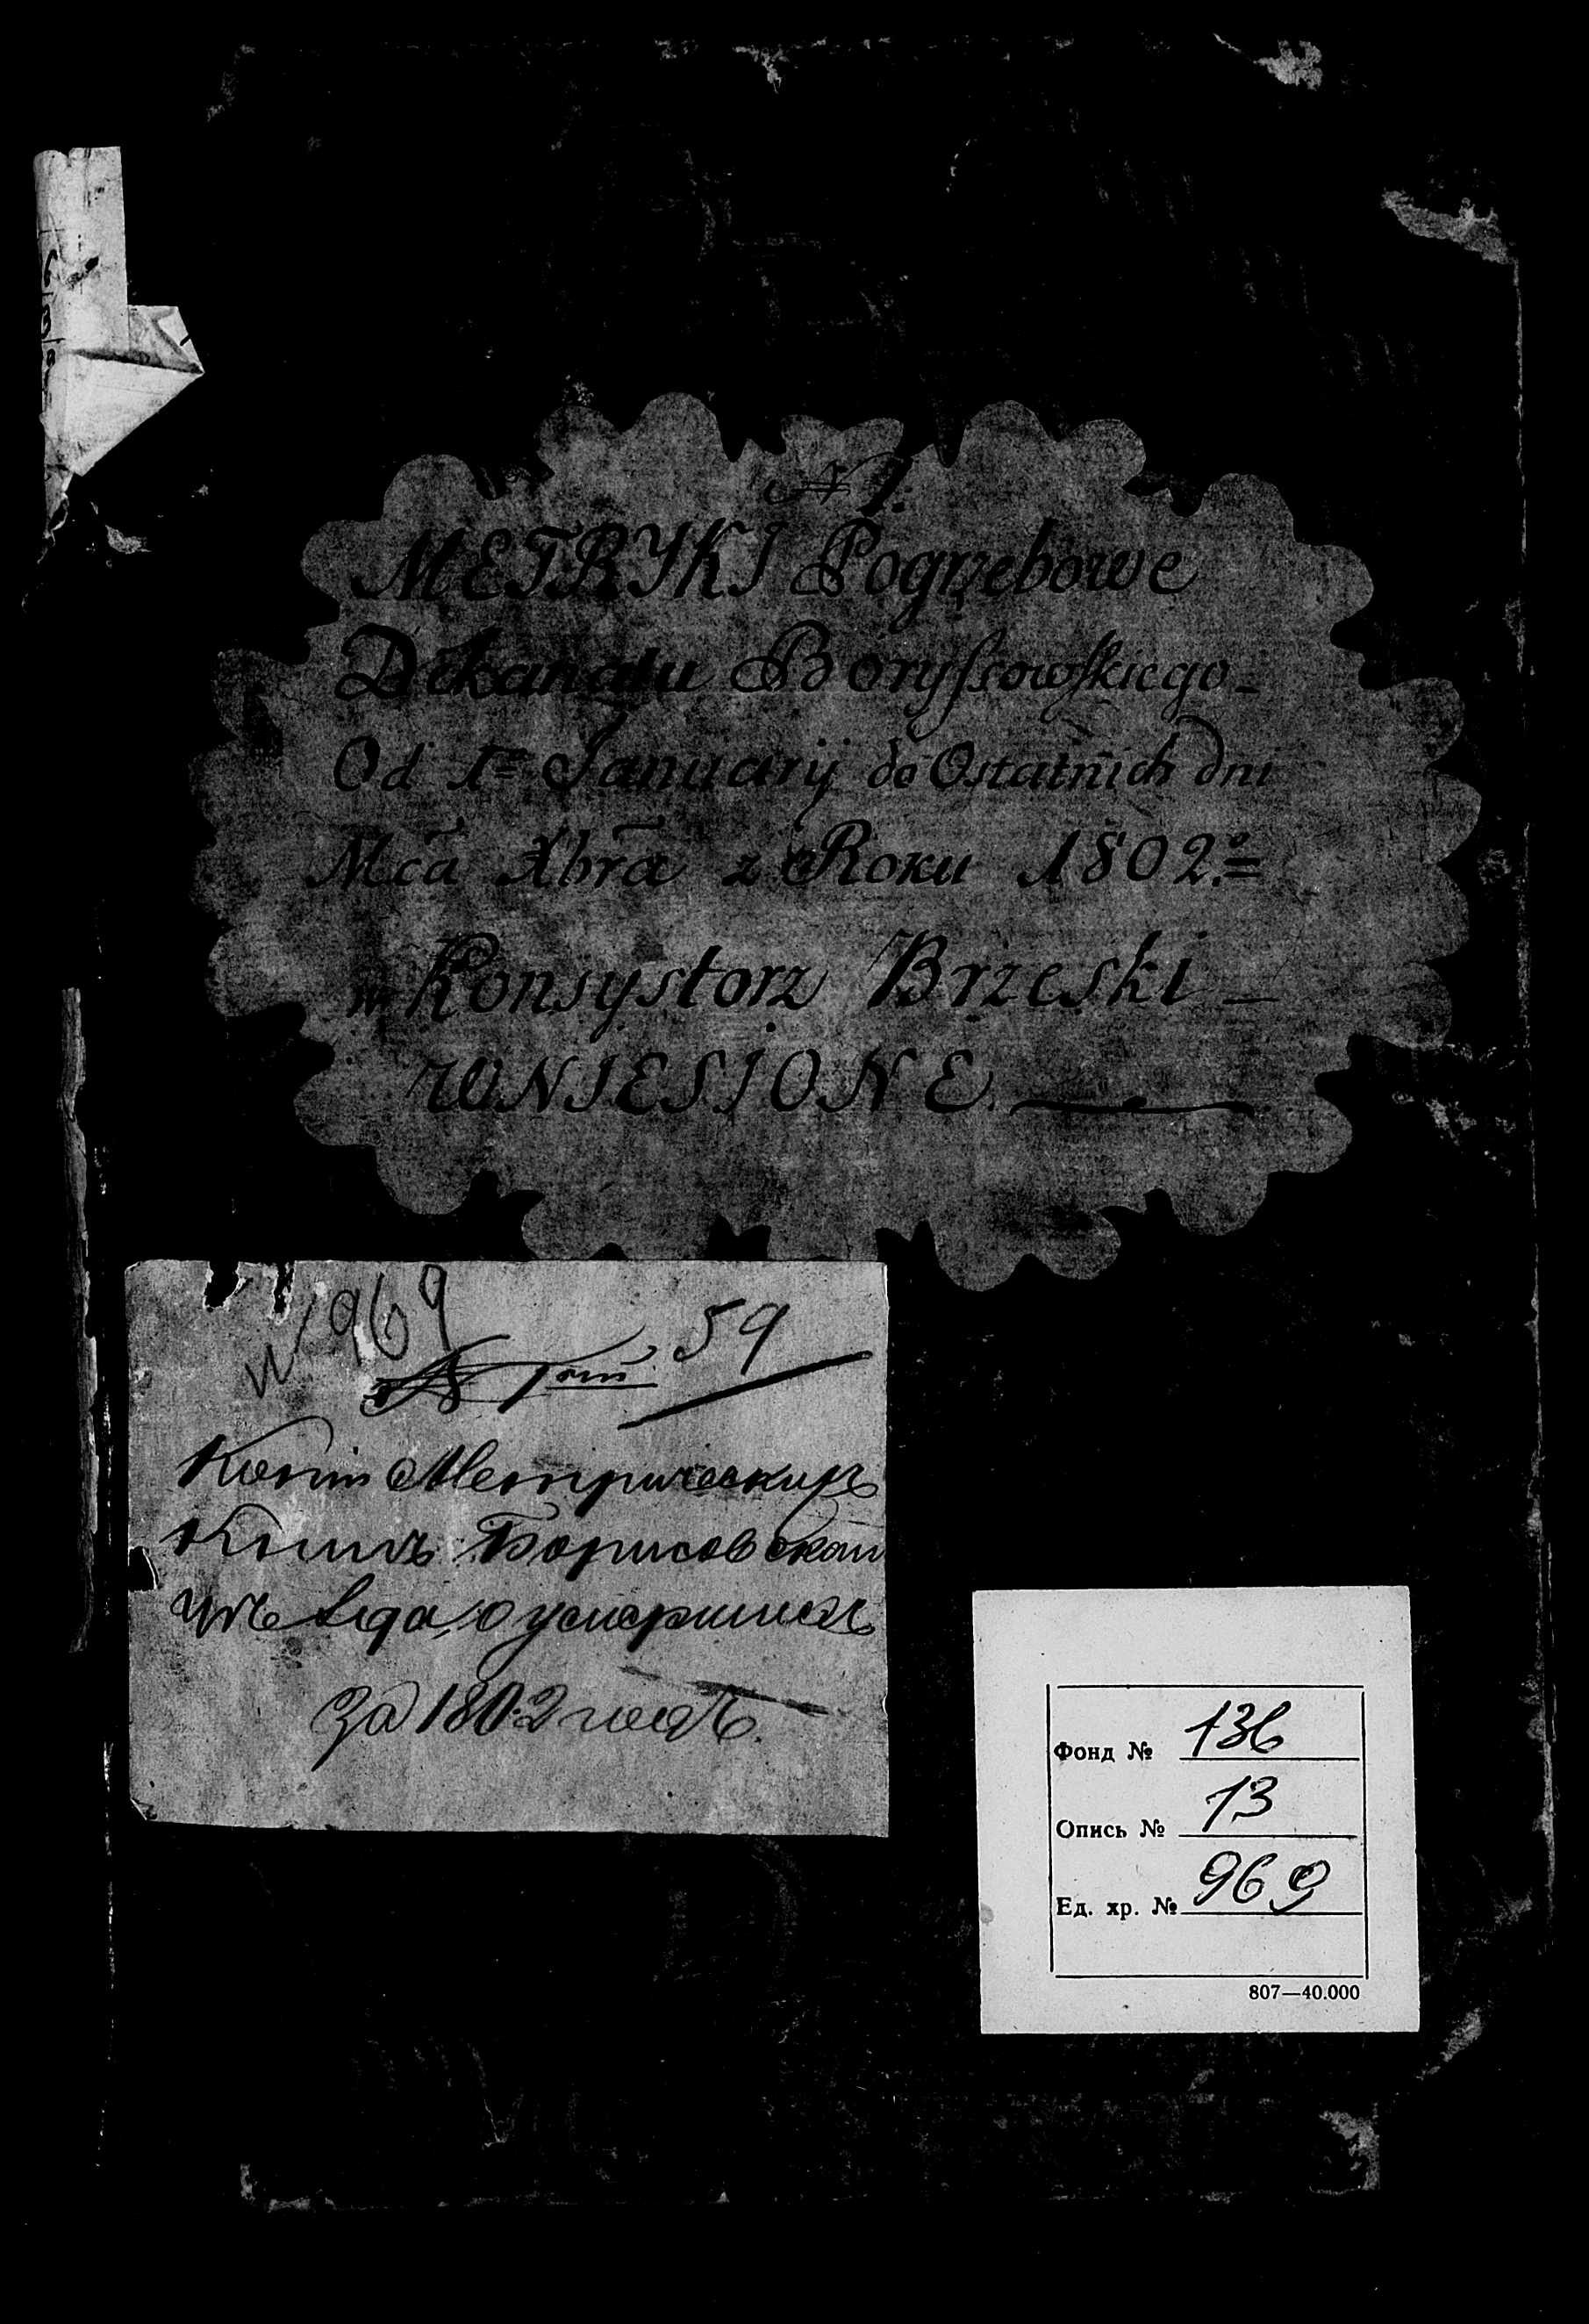 N 1.
METRYKI Pogrzebowe
Dekanatu Boryſsowſkiego -
Od 1go Januarij do Ostatnich dni
Mca Xbra z Roku 1802.o=
w Konsystorz Brzeski -
WNIESIONE.
N 969
59
№ 1ый
Копiи Метрическихъ
Книгъ Борисовскаго
уѣзда, о умершихъ
За 1802 годъ.
Фонд № 136
Опись № 13
Ед. хр. № 969
807—40.000